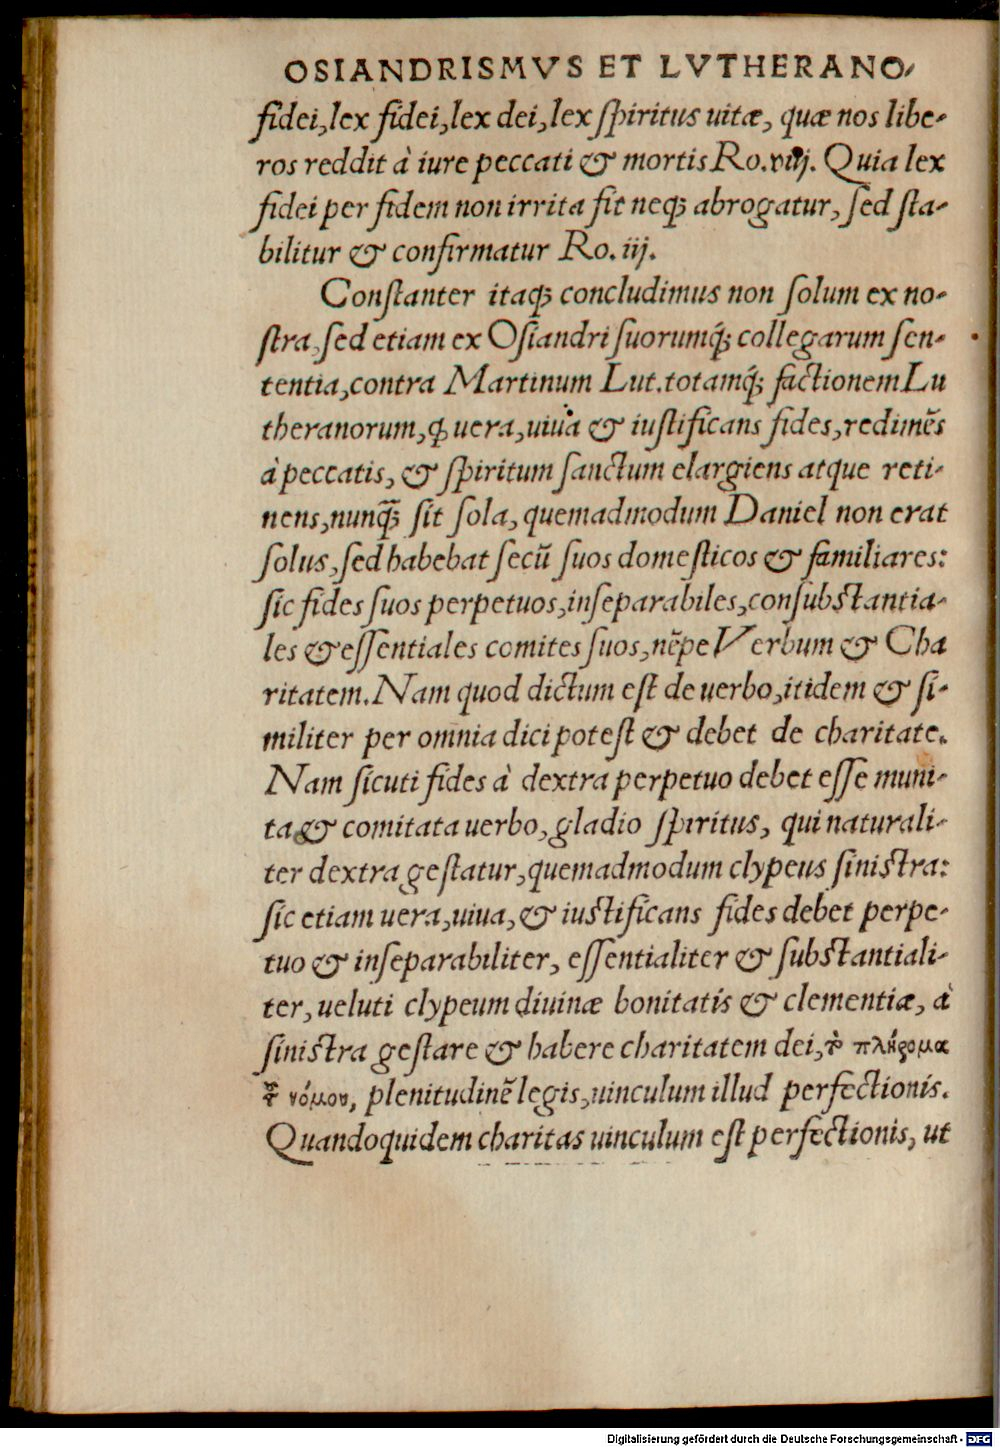 OSIANDRISMVS ET LVTHERANO⸗
fidei,lex fidei,lex dei,lex ſpiritus uitæ, quæ nos libe⸗
ros reddit à iure peccati & mortis Ro.viij. Quia lex
fidei per fidem non irrita fit neqꝫ abrogatur, ſed ſta⸗
bilitur & confirmatur Ro. iij.
Conſtanter itaqꝫ concludimus non ſolum ex no⸗
ſtra, ſed etiam ex Oſiandri ſuorumqꝫ́ collegarum ſen⸗
tentia,contra Martinum Lut.totamqꝫ́ factionem Lu
theranorum,ꝙ uera,uiua & iuſtificans fides,redimẽs
à peccatis, & ſpiritum ſanctum elargiens atque reti⸗
nens,nunꝗ̃ ſit ſola, quemadmodum Daniel non erat
ſolus,ſed habebat ſecũ ſuos domeſticos & familiares:
ſic fides ſuos perpetuos,inſeparabiles,conſubſtantia⸗
les & eſſentiales comites ſuos,nẽpe Verbum & Cha
ritatem.Nam quod dictum eſt de uerbo,itidem & ſi⸗
militer per omnia dici poteſt & debet de charitate.
Nam ſicuti fides à dextra perpetuo debet eſſe muni⸗
ta & comitata uerbo, gladio ſpiritus, qui naturali⸗
ter dextra geſtatur,quemadmodum clypeus ſiniſtra:
ſic etiam uera,uiua, & iuſtificans fides debet perpe⸗
tuo & inſeparabiliter, eſſentialiter & ſubſtantiali⸗
ter, ueluti clypeum diuinæ bonitatis & clementiæ, à
ſiniſtra geſtare & habere charitatem dei, τὸ πλήρομα
τοῦ νόμου, plenitudinẽ legis,uinculum illud perfectionis.
Quandoquidem charitas uinculum eſt perfectionis, ut
Digitalisierung gefördert durch die Deutsche Forschungsgemeinschaft - DFG